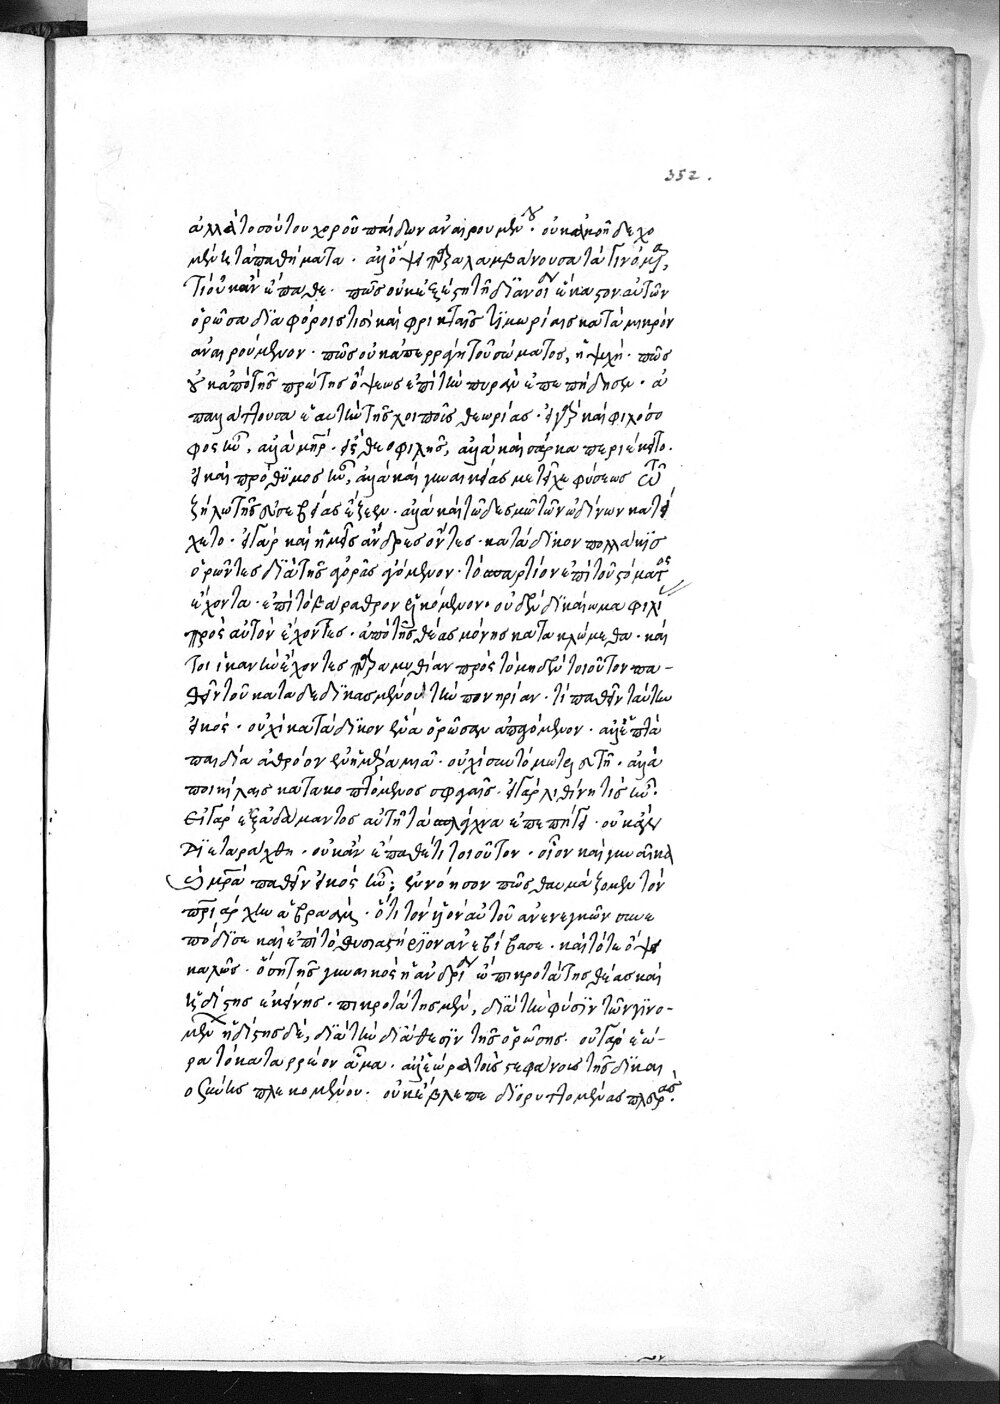 352.
ἀλλὰ τοσούτου χοροῦ παίδων ἀναιρουμένου. οὐκ ἀκοῇ δεχο
μένη τὰ παθήματα. ἀλλ' ὄψει παραλαμβάνουσα τὰ γινόμενα,
τί οὐκ ἂν ἔπαθε. πῶς οὐκ ἐξέστη τῇ διανοίᾳ ἕκαστον αὐτῶν
ὁρῶσα διαφόροις τισὶ καὶ φρικταῖς τιμωρίαις κατὰ μικρὸν
ἀναιρούμενον. πῶς οὐκ ἀπερράγη τοῦ σώματος, ἡ ψυχή. πῶς
οὐκ ἀπὸ τῆς πρώτης ὄψεως ἐπὶ τὴν πυρὰν ἐπεπήδησεν. ἀ
παλλάττουσα ἑαυτὴν τῆς λοιπῆς θεωρίας. εἰ γὰρ καὶ φιλόσο
φος ἦν, ἀλλὰ μήτηρ. εἰ καὶ θεοφιλὴς, ἀλλὰ καὶ σάρκα περιέκειτο.
εἰ καὶ πρόθυμος ἦν, ἀλλὰ καὶ γυναικείας μετεῖχε φύσεως. εἰ τῷ
ζήλῳ τῆς εὐσεβείας ἔζεεν. ἀλλὰ καὶ τῷ δεσμῷ τῶν ὠδίνων κατεί
χετο. εἰ γὰρ καὶ ἡμεῖς ἄνδρες ὄντες. κατάδικον πολλάκις
ὁρῶντες διὰ τῆς ἀγορᾶς ἀγόμενον. τὸ σπαρτίον ἐπὶ τοῦ στόματος
ἔχοντα. ἐπὶ τὸ βάραθρον ἑλκόμενον. οὐδὲν δικαίωμα φιλί
πρὸς αὐτὸν ἔχοντες. ἀπὸ τῆς θέας μόνης κατακλώμεθα. καί
τοι ἱκανὴν ἔχοντες παραμυθίαν πρὸς τὸ μηδὲν τοιοῦτον πα-
θεῖν τοῦ καταδεδικασμένου τὴν πονηρίαν. τί παθεῖν ταύτην
εἰκός. οὐχὶ κατάδικον ἕνα ὁρῶσαν ἀπαγόμενον. ἀλλ' ἑπτὰ
παιδία ἀθρόον ἐν ἡμέρᾳ μιᾷ. οὐχὶ συντόμῳ τελευτῇ. ἀλλὰ
ποικίλαις κατακοπτόμενος σφαγαῖς. εἰ γὰρ λιθίνη τις ἦν.
εἰ γὰρ ἐξ ἀδάμαντος αὐτῇ τὰ σπλάγχνα ἐπεπήγει. οὐκ ἂν
διεταράχθη. οὐκ ἂν ἔπαθέ τι τοιοῦτον. οἷον καὶ γυναῖκα
καὶ μητέρα παθεῖν εἰκὸς ἦν; ἐννόησον πῶς θαυμάζομεν τὸν
πατριάρχην ἀβραάμ. ὅτι τὸν υἱὸν αὐτοῦ ἀνενεγκὼν συνε
πόδισε καὶ ἐπὶ τὸ θυσιαστήριον ἀνεβίβασε. καὶ τότε ὄψει
καλῶς. ὅση τῆς γυναικὸς ἡ ἀνδρεία. ὢ πικροτάτης θέας καὶ
ἡδίστης ἐκείνης. πικροτάτης μὲν, διὰ τὴν φύσιν τῶν γινο-
μένων ἡδίστης δὲ, διὰ τὴν διάθεσιν τῆς ὁρώσης. οὐ γὰρ ἑώ-
ρα τὸ καταρρέον αἷμα. ἀλλ' ἑώρα τοὺς στεφάνους τῆς δικαι
οσύνης πλεκομένου. οὐκ ἔβλεπε διορυττομένας πλευράς.